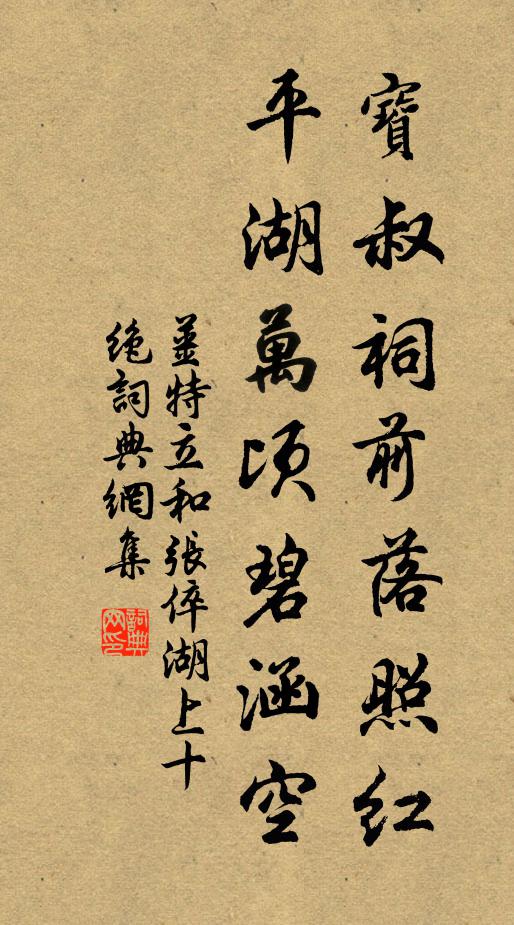 寶叔祠前落照紅
平湖萬頃碧涵空
姜特立和張倅湖上十
絕詞典網集
詞典网印